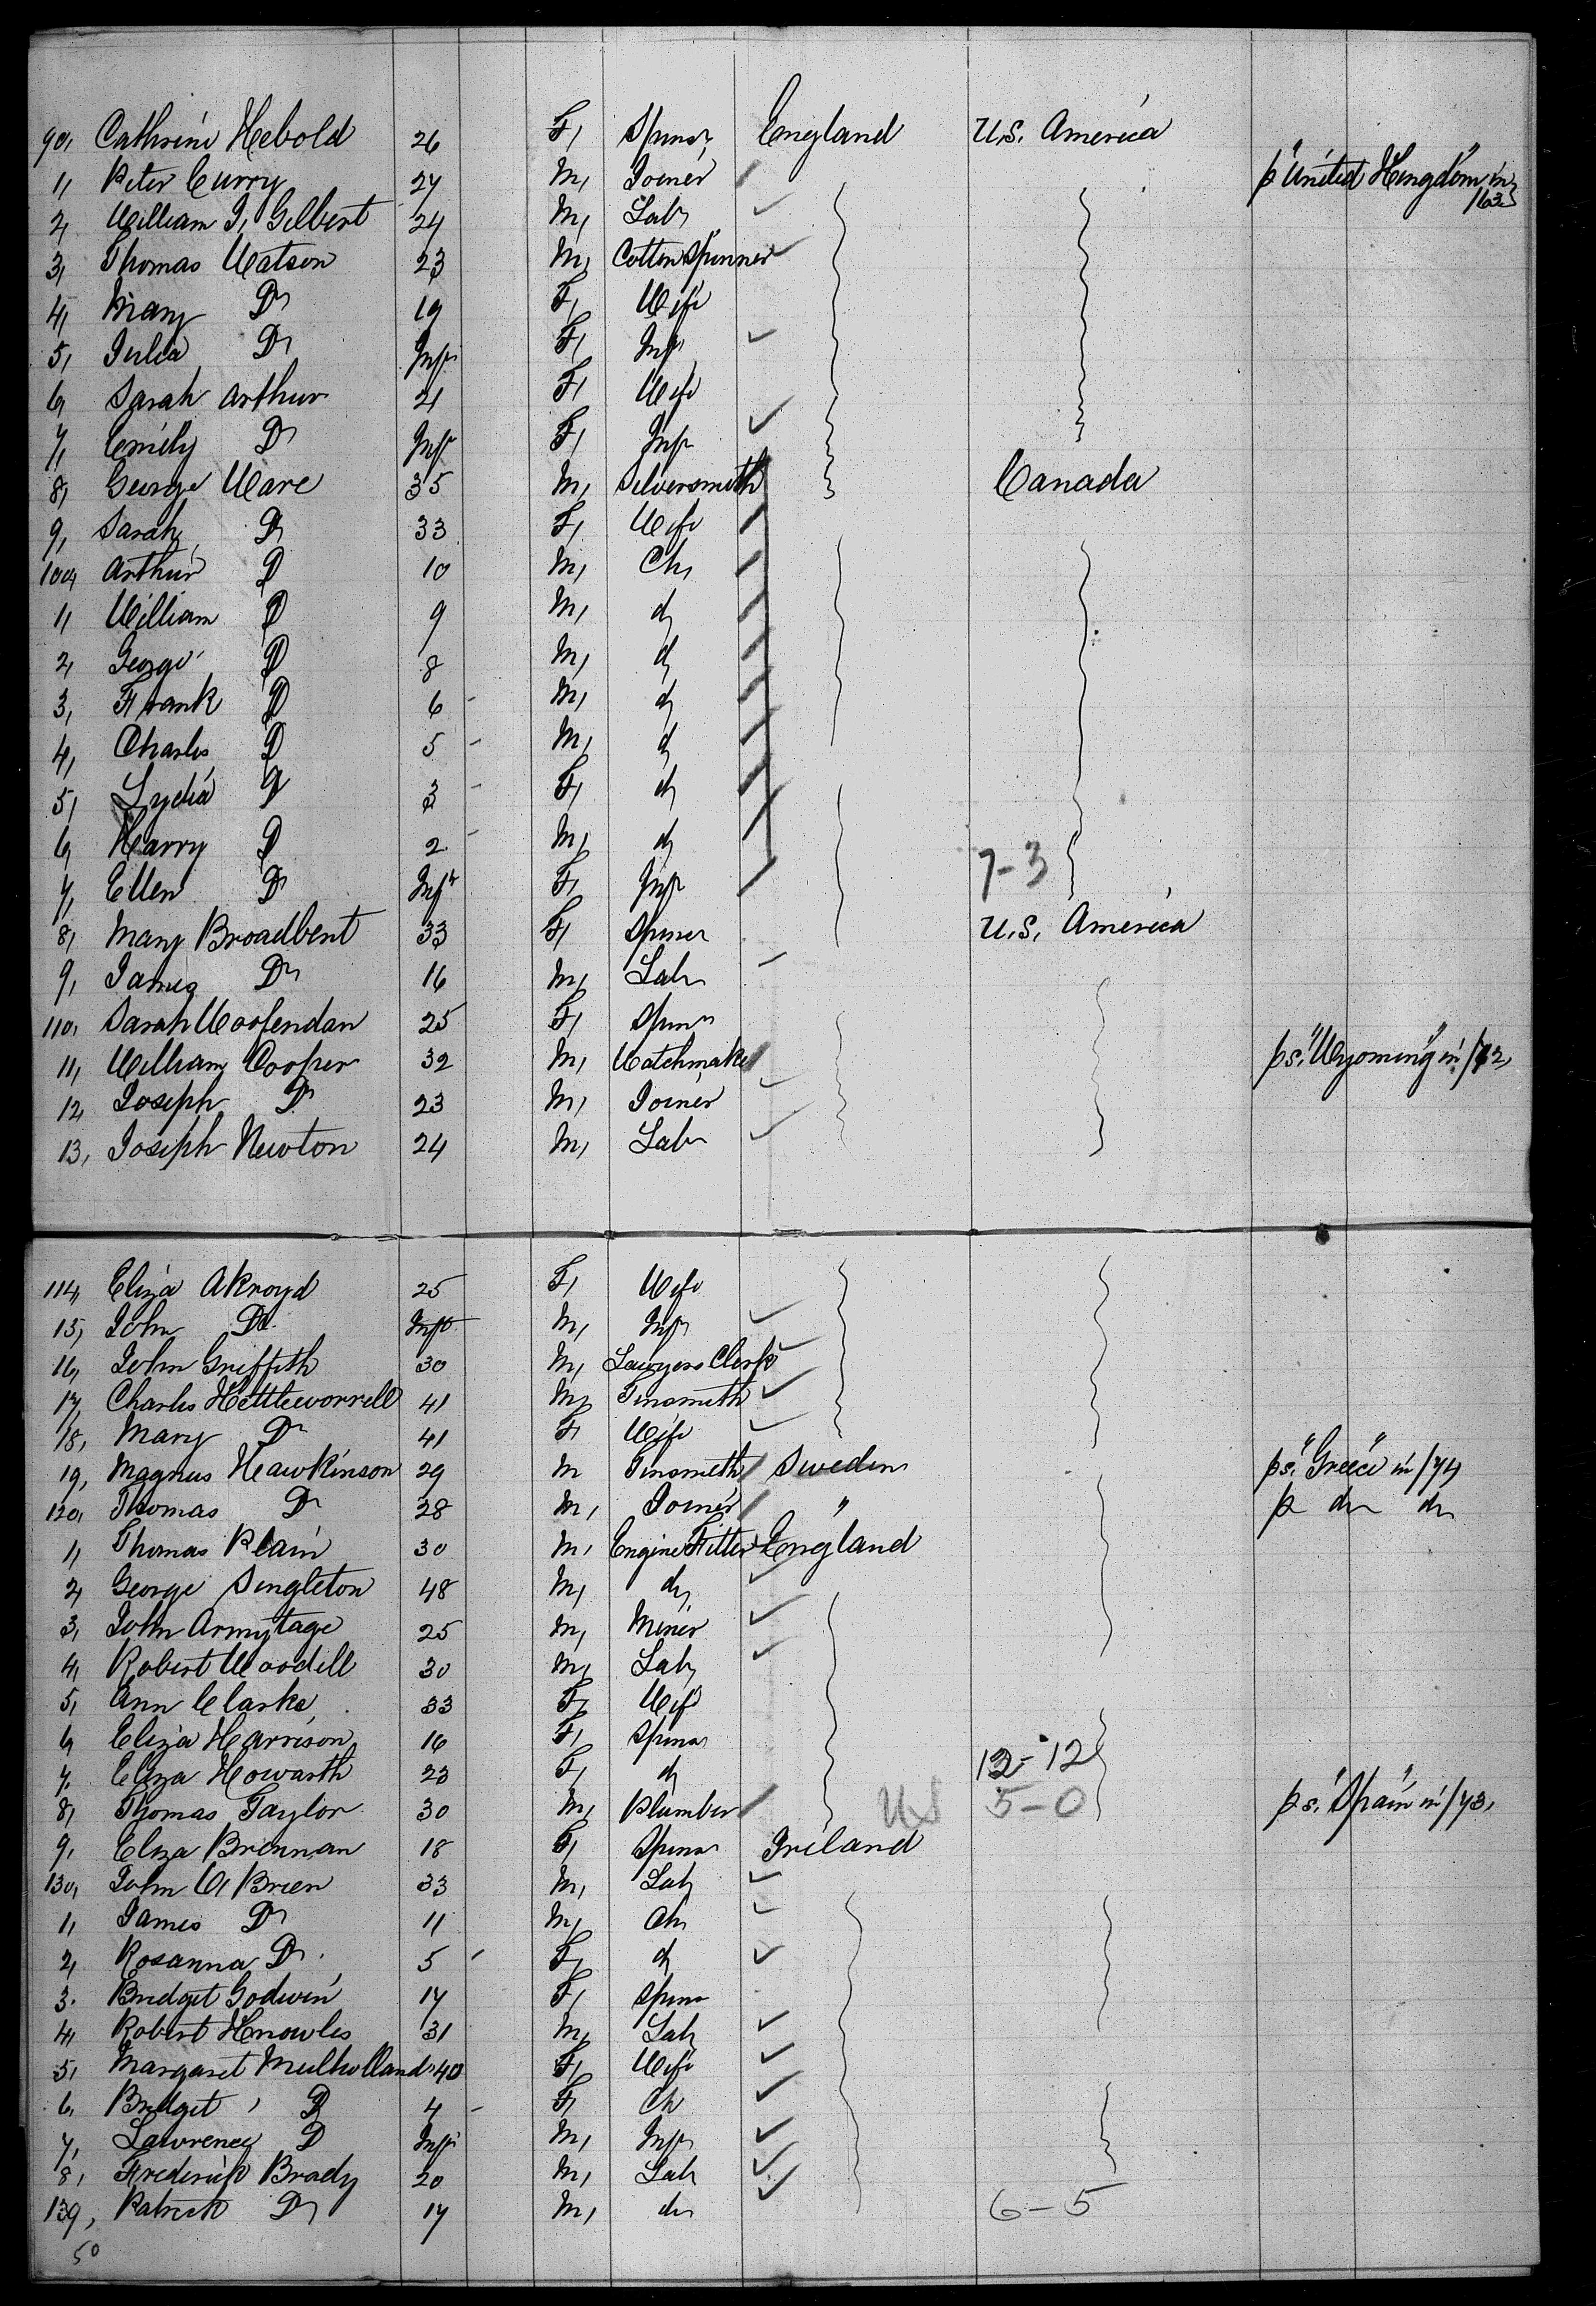 90, Cathrine Hebold 26 F, Spinsr England U.S. America
1, Peter Curry 27 M, Joiner p "United Kingdom" in /63
2, William J, Gilbert 24 M, Labr
3, Thomas Watson 23 M, Cotton Spinner
4, Mary Do 19 F, Wife
5, Julia Do Inft F, Inft
6, Sarah Arthur 21 F, Wife
7, Emily Do Inft F, Inft
8, George Ware 35 M, Silversmith Canada
9, Sarah, Do 33 F, Wife
100, Arthur Do 10 M, Ch,
1, William Do 9 M, do
2, George Do 8 M, do
3, Frank Do 6 M, do
4, Charles Do 5 M, do
5, Lydia Do 3 F, do
6, Harry Do 2 M, do
7, Ellen Do Inft F, Inft 7-3
8, Mary Broadbent 33 F, Spinsr U.S. America
9, James Do 16 M, Labr
110, Sarah Woofendan 25 F, Spinsr
11, William Cooper 32 M, Watchmaker p s. "Wyoming" in /72,
12, Joseph Do 23 M, Joiner
13, Joseph Newton 24 M, Labr
114, Eliza Akroyd 25 F, Wife
15, John Do Inft M, Inft
16, John Griffith 30 M, Lawyers Clerk
17, Charles Kettleworrell 41 M, Tinsmith
18, Mary Do 41 F Wife
19, Magnus Hawkinson 29 M Tinsmith Sweden p s. "Greece" in /74
120, Thomas Do 28 M, Joiner " p do do
1, Thomas Plain 30 M, Engine Fitter England
2, George Singleton 48 M, do
3, John Armytage 25 M, Miner
4, Robert Woodill 30 M, Labr
5, Ann Clarke 33 F, Wife
6, Eliza Harrison 16 F, Spinsr
7. Eliza Howarth 23 F, do 12-12
8, Thomas Taylor 30 M, Plumber US 5-0 p s. "Spain" in /73,
9, Eliza Brennan 18 F, Spinsr Ireland
130, John O'Brien 33 M, Labr
1, James Do 11 M, Ch,
2, Rosanna Do 5 F, do
3. Bridget Godwin 17 F, Spinsr
4, Robert Knowles 31 M, Labr
5, Margaret Mulholland 40 F, Wife
6, Bridget Do 4 F, Ch
7, Lawrence Do Inft M, Inft
8, Frederick Brady 20 M, Labr
139, Patrick Do 17 M, do 6-5
50